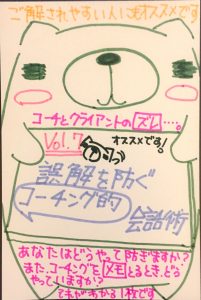 ご解されやすい人にもオススメです
コーチとクライアントのズレ・・・。
Vol.7
オススメです!
誤解を防ぐ
コーチング的
会話術
あなたはどうやって防ぎますか?
また、コーチングをメモとるとき、どう
やっていますか?
それがわかる1枚です